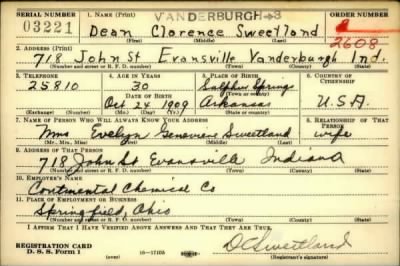 SERIAL NUMBER
1. NAME (Print)
VANDERBURGH-3
ORDER NUMBER
03221
Dean Clarence Sweetland
2608
(First) (Middle) (Last)
2. ADDRESS (Print)
718 John St Evansville Vanderburgh Ind.
(Number and street or R. F. D. number) (Town) (County) (State)
3. TELEPHONE
4. AGE IN YEARS
5. PLACE OF BIRTH
6. COUNTRY OF CITIZENSHIP
25810
30
Sulphur Springs
DATE OF BIRTH
(Town or county)
Oct 24 1909
Arkansas
U.S.A.
(Exchange) (Number)
(Mo.) (Day) (Yr.)
(State or country)
7. NAME OF PERSON WHO WILL ALWAYS KNOW YOUR ADDRESS
8. RELATIONSHIP OF THAT PERSON
Mrs Evelyn Genevieve Sweetland
wife
(Mr., Mrs., Miss) (First) (Middle) (Last)
9. ADDRESS OF THAT PERSON
718 John St Evansville Indiana
(Number and street or R. F. D. number) (Town) (County) (State)
10. EMPLOYER'S NAME
Continental Chemical Co
11. PLACE OF EMPLOYMENT OR BUSINESS
Springfield, Ohio
(Number and street or R. F. D. number) (Town) (County) (State)
I AFFIRM THAT I HAVE VERIFIED ABOVE ANSWERS AND THAT THEY ARE TRUE.
REGISTRATION CARD
D. S. S. Form 1
16-17105
D C Sweetland
(Registrant's signature)